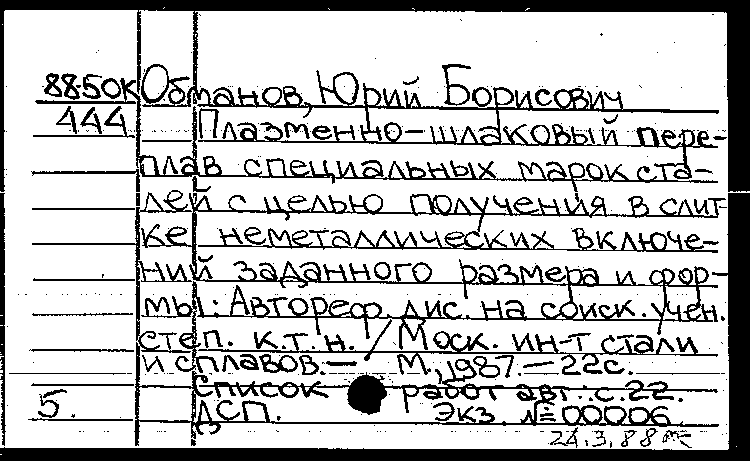 88-50К Обманов, Юрий Борисович
444 Плазменно-шлаковый пере-
плав специальных марок ста-
лей с целью получения в слит
ке неметаллических включе-
ний заданного размера и фор-
мы: Автореф. дис. на соиск. учен.
степ. к.т.н. / Моск. ин-т стали
и сплавов. — М., 1987. — 22с.
Список работ авт.: с. 22.
5. ДСП. Экз. №00006
24.3.88